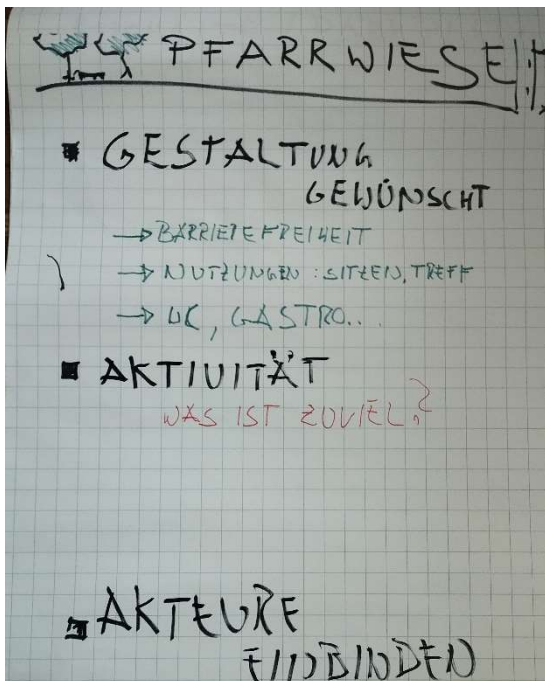 PFARRWIESE
GESTALTUNG
GEWÜNSCHT
→ BARRIEREFREIHEIT
→ NUTZUNGEN: SITZEN, TREFF
→ UK, GASTRO...
AKTIVITÄT
WAS IST ZUVIEL?
AKTEURE
EINBINDEN